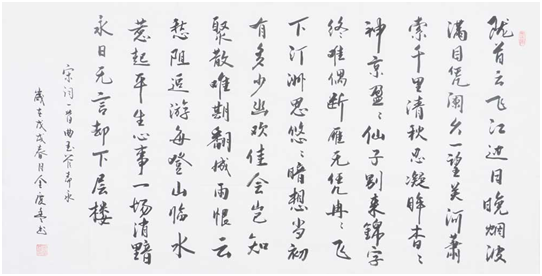 陇首云飞江边日晚烟波
满目凭阑久一望关河萧
索千里清秋忍凝眸杳〻
神京盈〻仙子别来錦字
终难偶断雁无凭冉〻飞
下汀洲思悠〻暗想当初
有多少幽欢佳会岂知
聚散难期翻成雨恨云
愁阻追游每登山临水
惹起平生心事一场消黯
永日无言却下层楼
宋词一首曲玉管柳永
岁在戊戌春月金